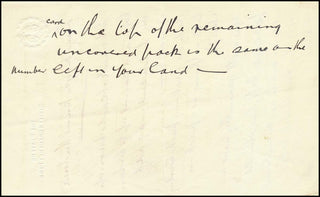 card
on the top of the remaining
uncovered pack is the same as the
number left in your hand —